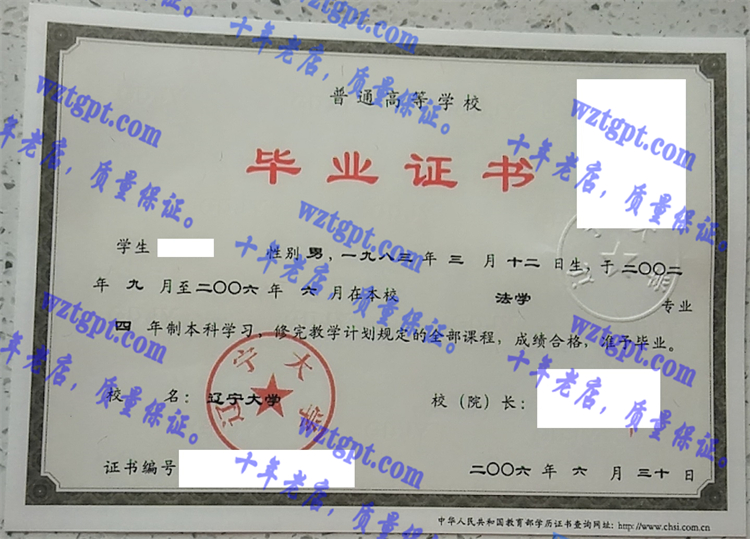 普通高等学校
毕业证书
学生 性别 男，一九八三 年 三 月 十二 日生，于 二〇〇二
年 九 月至 二〇〇六 年 六 月在本校 法学 专业
四 年制本科学习，修完教学计划规定的全部课程，成绩合格，准予毕业。
校 名： 辽宁大学 校（院）长：
证书编号 二〇〇六 年 六 月 三十 日
中华人民共和国教育部学历证书查询网址：http://www.chsi.com.cn
辽宁大学
wztgpt.com
十年老店，质量保证。
wztgpt.com
十年老店，质量保证。
wztgpt.com
十年老店，质量保证。
wztgpt.com
十年老店，质量保证。
wztgpt.com
十年老店，质量保证。
wztgpt.com
十年老店，质量保证。
wztgpt.com
十年老店，质量保证。
wztgpt.com
十年老店，质量保证。